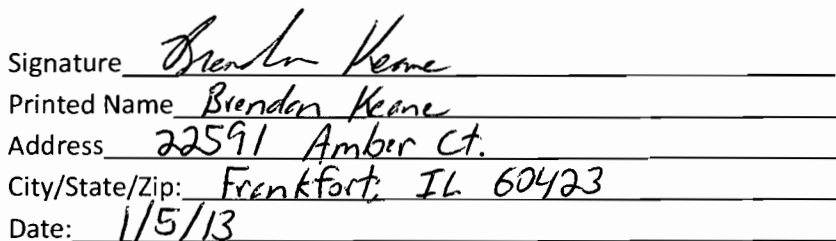 Signature Brendan Keane
Printed Name Brendan Keane
Address 22591 Amber Ct.
City/State/Zip: Frankfort, IL 60423
Date: 1/5/13